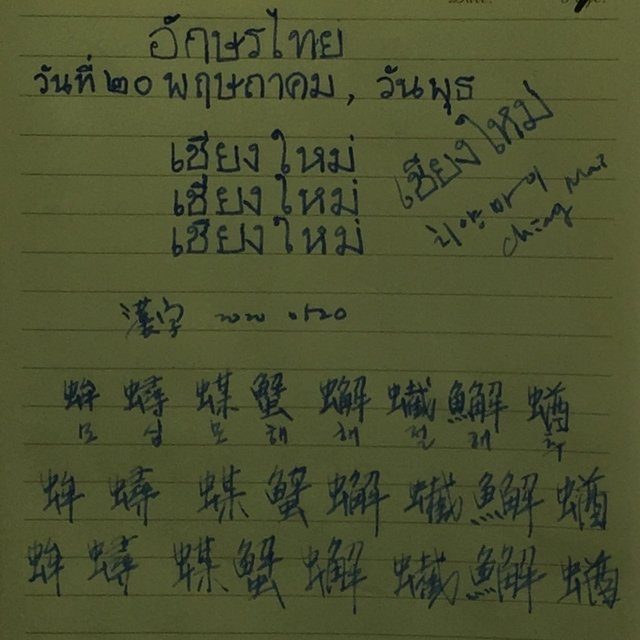 อักษรไทย
วันที่ ๒๐ พฤษภาคม, วันพุธ
เชียงใหม่
เชียงใหม่
เชียงใหม่
เชียงใหม่
치앙마이
Chiang Mai
漢字 2020 0520
蛑 蟳 蝶 蟹 蠏 蠘 鱰 蝤
모 심 해 해 절 해 추
蛑 蟳 蝶 蟹 蠏 蠘 蝤
蛑 蟳 蝶 蟹 蠏 蠘 蝤